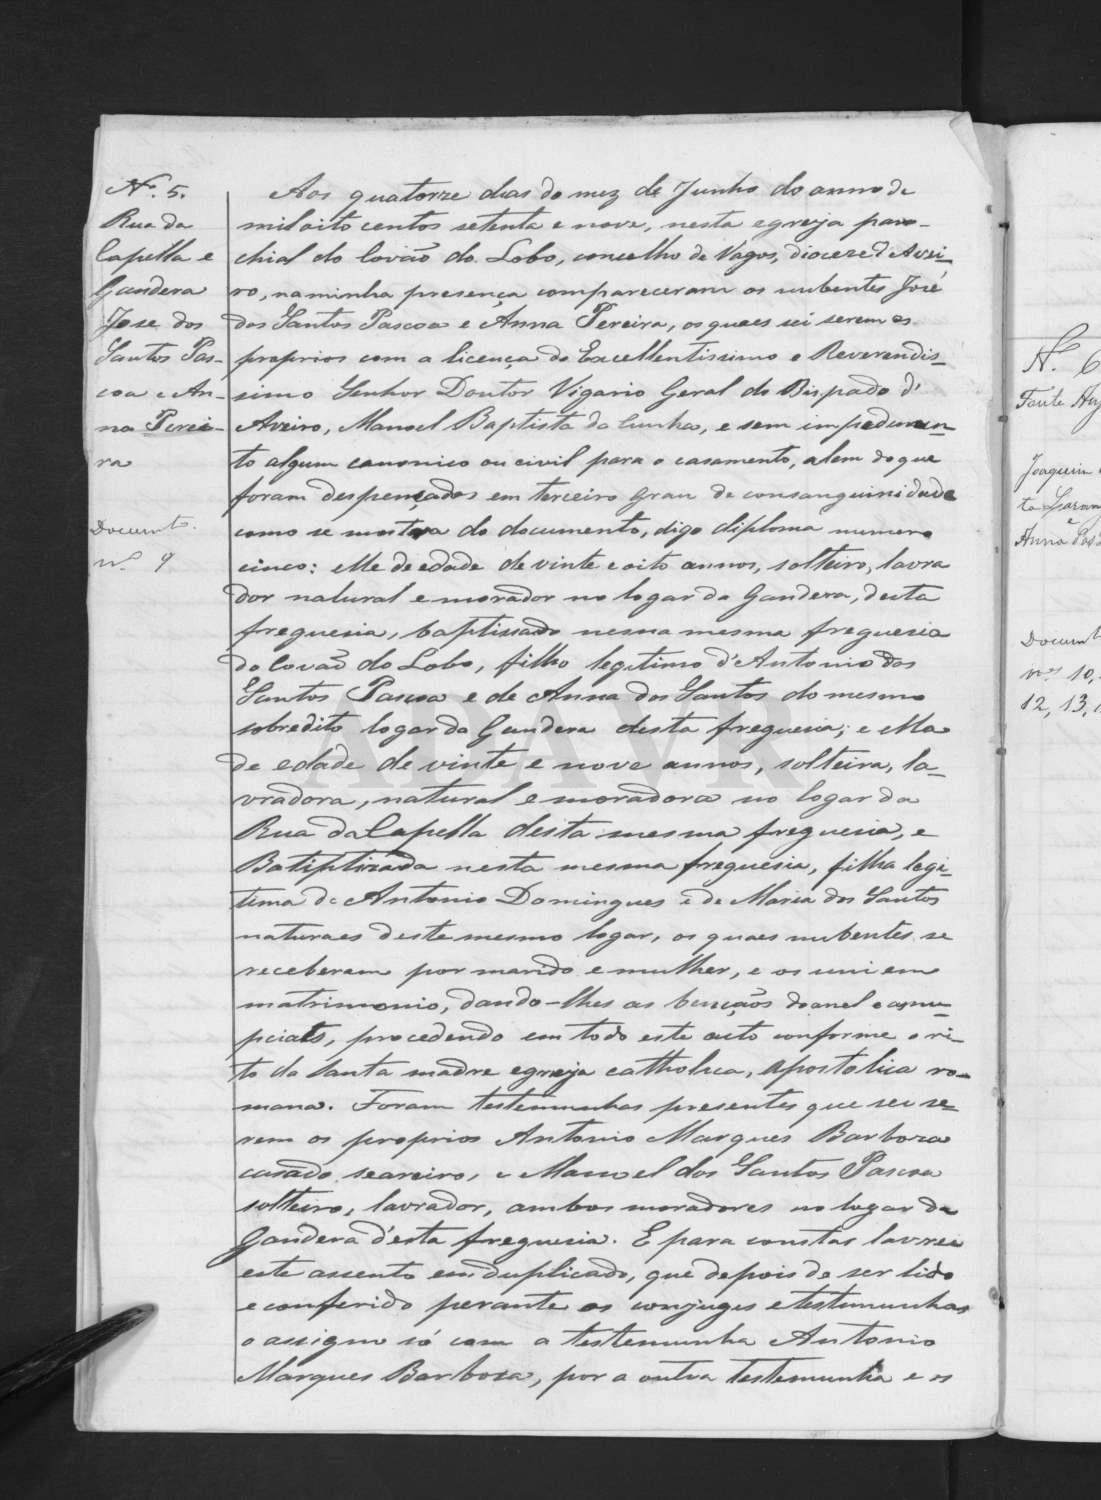 Nº. 5.
Rua da
Capella e
Gandera
Jose dos
Santos Pas-
coa e An-
na Perei-
ra
Documto.
nº. 9
Aos quatorze dias do mez de Junho do anno de
mil oito centos setenta e nove, nesta egreja paro-
chial do Covão do Lobo, concelho de Vagos, diocese d'Avei-
ro, na minha presença compareceram os nubentes José
dos Santos Pascoa e Anna Pereira, os quaes sei serem os
proprios com a licença do Excellentissimo e Reverendis-
simo Senhor Doutor Vigario Geral do Bispado d'
Aveiro, Manoel Baptista da Cunha, e sem impedimen-
to algum canonico ou civil para o casamento, alem do que
foram despençados em terceiro grau de consanguinidade
como se mostra do documento, digo diploma numero
cinco: elle de edade de vinte e oito annos, solteiro, lavra
dor natural e morador no logar da Gandera, desta
freguesia, baptisado nessa mesma freguesia
do Covão do Lobo, filho legitimo d'Antonio dos
Santos Pascoa e de Anna dos Santos do mesmo
sobredito logar da Gandera desta freguesia; e ella
de edade de vinte e nove annos, solteira, la-
vradora, natural e moradora no logar da
Rua da Capella desta mesma freguesia, e
Batiptizada nesta mesma freguesia, filha legi-
tima de Antonio Domingues e de Maria dos Santos
naturaes deste mesmo logar, os quaes nubentes se
receberam por marido e mulher, e os uni em
matrimonio, dando-lhes as bençãos do anel e as nu-
pciaes, procedendo em todo este acto conforme o ri-
to da Santa madre egreja catholica, apostolica ro-
mana. Foram testemunhas presentes que sei se-
rem os proprios Antonio Marques Barboza
casado, seareiro, e Manoel dos Santos Pascoa
solteiro, lavrador, ambos moradores no logar da
Gandera d'esta freguesia. E para constar lavrei
este assento em duplicado, que depois de ser lido
e conferido perante os conjuges e testemunhas
o assigno só com a testemunha Antonio
Marques Barboza, por a outra testemunha e os
Nº. 6
Fonte
Joaquim
to
e
Anna
Documt
nos. 10,
12, 13,
ADAVR